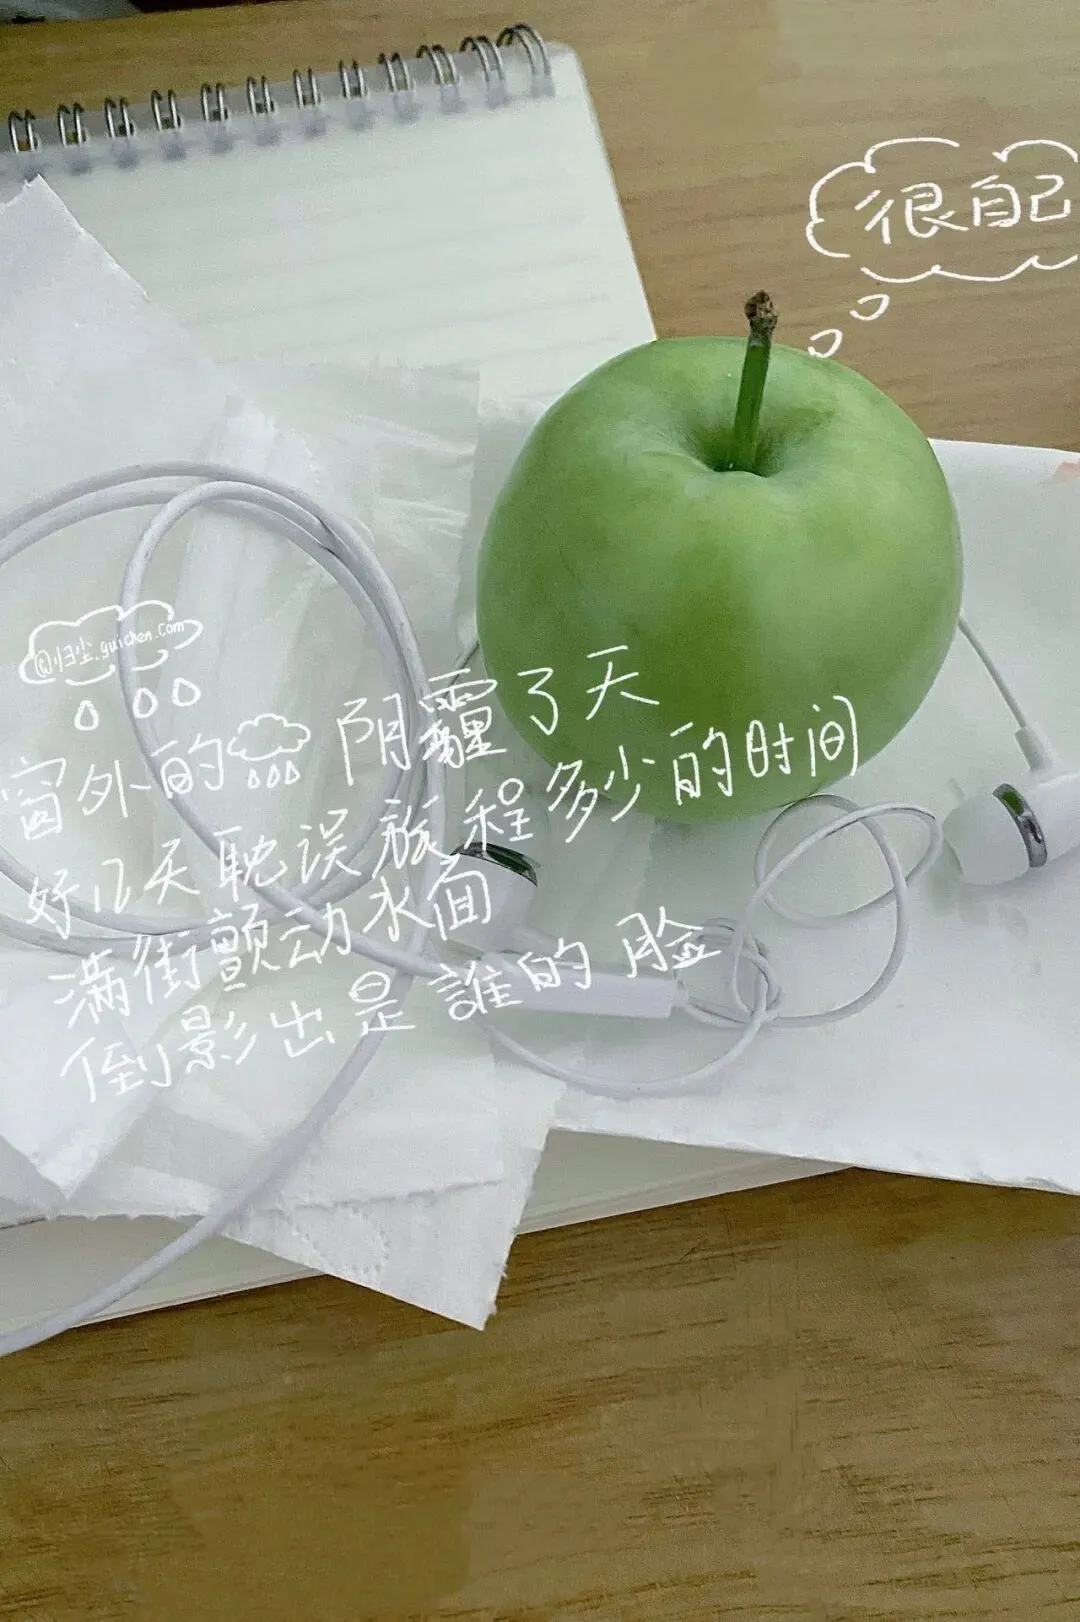 很自己
@归尘.guichen.com
窗外的 阴霾了天
好几天耽误旅程多少的时间
满街颤动水面
倒影出是誰的脸